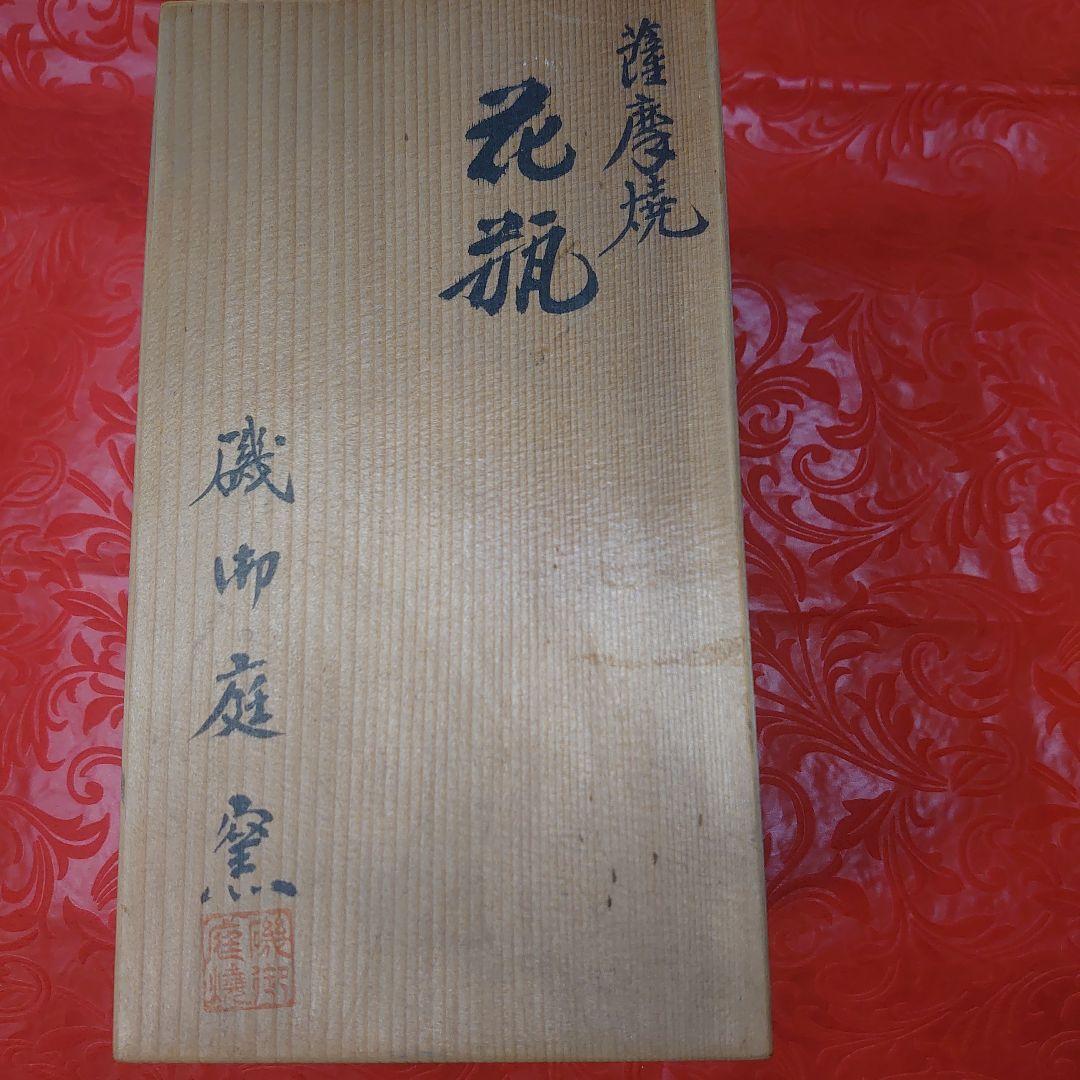 薩摩燒
花瓶
磯御庭窯
磯御
庭燒